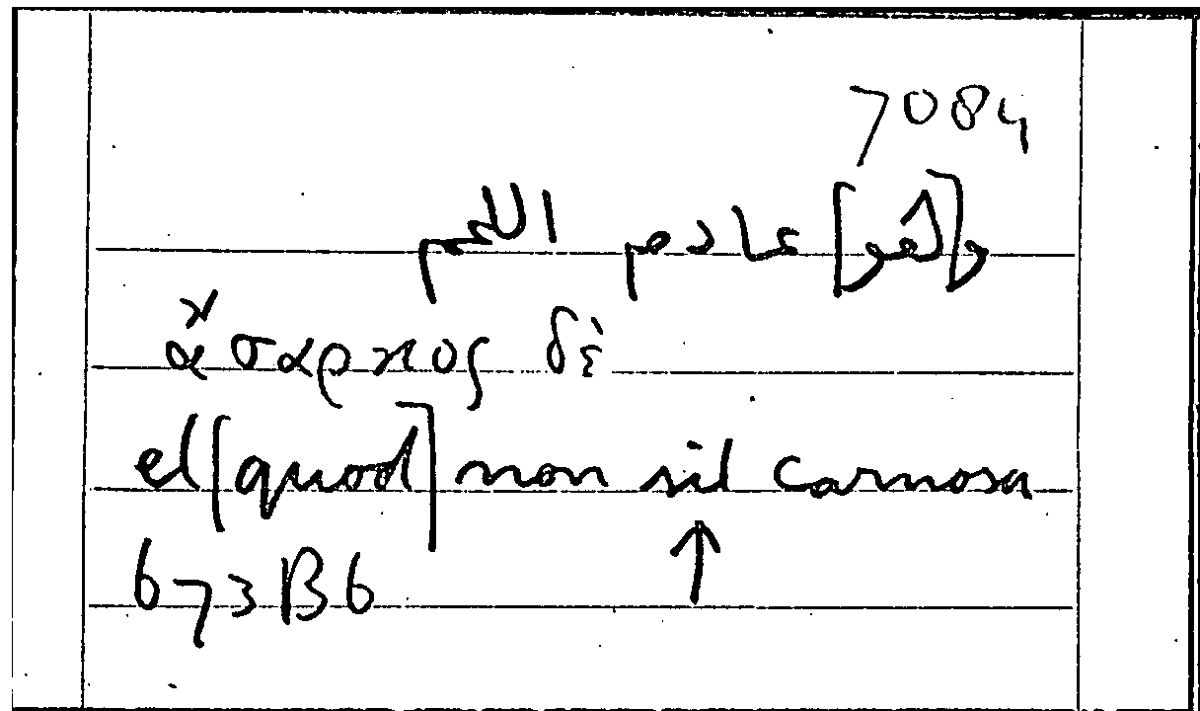 7084
و[هو] عادم اللحم
ἄσαρκος δὲ
et [quod] non sit carnosa
673B6 ↑